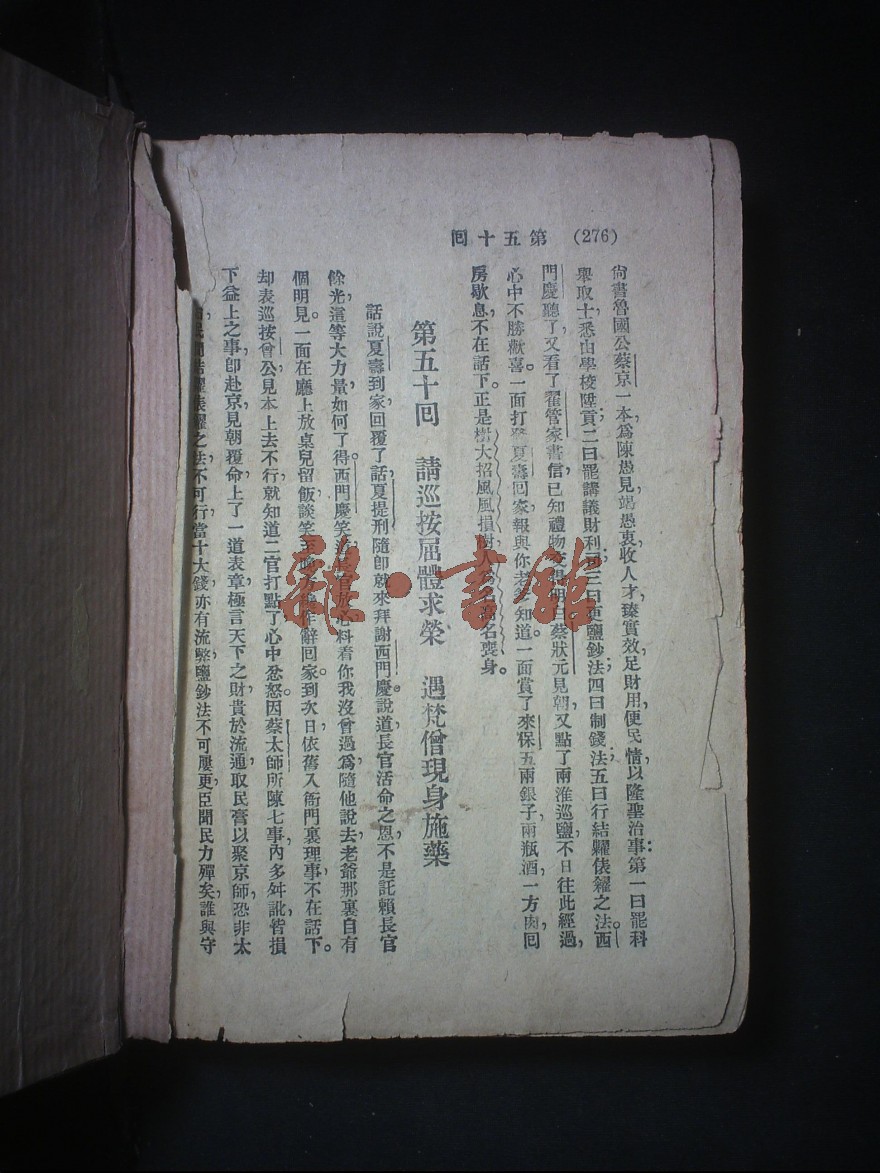 (276) 第五十回
尙書魯國公蔡京一本，爲陳愚見，竭愚衷，收人才，臻實效，足財用，便民情，以隆聖治事：第一曰罷科
舉取士，悉由學校陞貢；二曰罷講議財利司；三曰更鹽鈔法；四曰制錢法；五曰行結糶俵糴之法。西
門慶聽了，又看了翟管家書信，已知禮物交得明白，蔡狀元見朝，又點了兩淮巡鹽，不日往此經過，
心中不勝歡喜。一面打發夏壽回家，報與你老爹知道。一面賞了來保五兩銀子，兩瓶酒，一方肉，回
房歇息，不在話下。正是樹大招風風損樹，人爲名高名喪身。
第五十回　請巡按屈體求榮　遇梵僧現身施藥
話說夏壽到家回覆了話，夏提刑隨卽就來拜謝西門慶。說道長官活命之恩，不是託賴長官
餘光，這等大力量，如何了得。西門慶笑道長官放心，料着你我沒曾過爲，隨他說去，老爺那裏自有
個明見。一面在廳上放桌兒留飯，談笑至晚，方纔作辭回家。到次日，依舊入衙門裏理事，不在話下。
却表巡按曾公見本上去不行，就知道二官打點了，心中忿怒。因蔡太師所陳七事，內多舛訛，皆損
下益上之事，卽赴京見朝覆命，上了一道表章，極言天下之財，貴於流通，取民膏以聚京師，恐非太
之法不可行，當十大錢，亦有流弊，鹽鈔法不可屢更，臣聞民力殫矣，誰與守
雜·書館